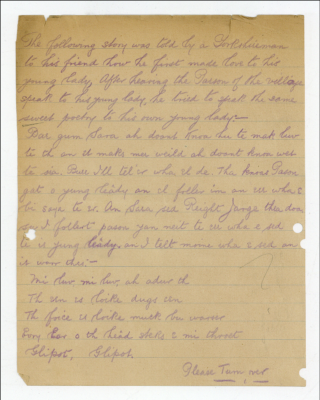 The following story was told by a Yorkshireman
to his friend how he first made love to his
young lady. After hearing the Parson of the village
speak to his young lady, he tried to speak the same
sweet poetry to his own young lady:-
gum Sara ah doant know hu to mak luv
to th an it makes me weild ah doant know wot
to Bur I'll tell what I'll do. Tha knows Parson
get a young leidy an I'll foller im an see what
he says to er. An Sara sed Reight
so I follert passon yan neet to see wha e sed
to is yung leidy. an I telt mone wha e sed an
it war this:-
Mi luv, mi luv, ah adur th
Th een is loike dugs een
Th foice is loike muck
Ivery ear o th head steks i mi throit
Glipot, Glipoh
Please Turn over